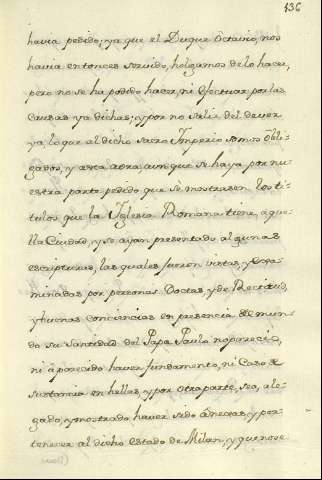 136
havia pedido; ya que el Duque Octavio, nos
havia entonces servido, holgamos de lo hacer,
pero no se ha podido hacer, ni efectuar, por las
Causas ya dichas; y por no salir del dever
ya, lo que al dicho Sacro Imperio somos obli-
gados, y asta aora, aunque se haya por nu
estra parte pedido que se mostrasen los ti-
tulos que la Yglesia Romana tiene, aque
lla Ciudad, y se ayan presentado algunas
escripturas, las quales fueron vistas, y Exa-
minadas por personas Doctas, y de Rectitud,
y buenas conciencias en presencia de
do su Santidad del Papa Paulo no parecio,
ni a parecido haver fundamento, ni Caso de
sustancia en hellas, y por otra parte, sea, ale-
gado, y mostrado haver sido anexas, y per-
tenecer al dicho estado de Milan, y que no se